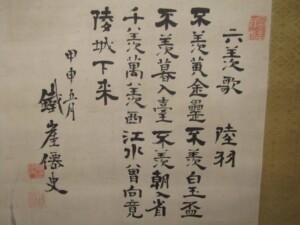 六羨歌 陸羽
不羨黄金罍不羨白玉盃
不羨暮入臺不羨朝入省
千羨萬羨西江水曾向竟
陵城下来
甲申五月
鐵崖僊史